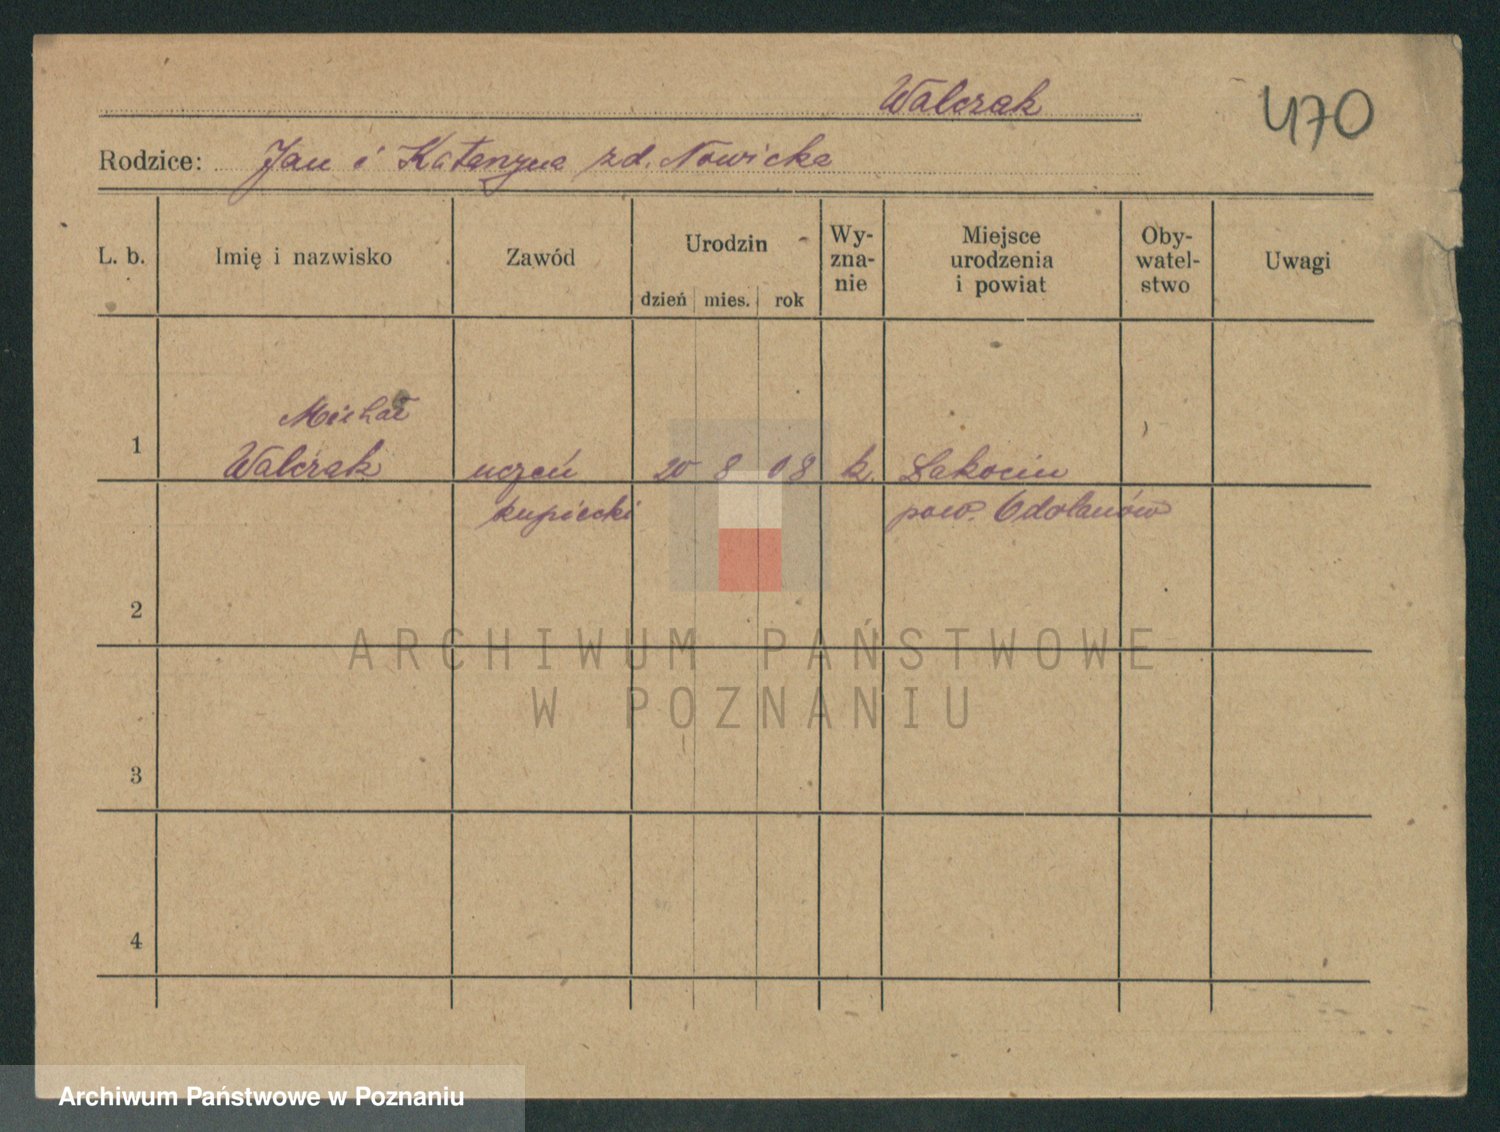 Walczak
470
Rodzice: Jan i Katarzyna zd. Nowicka
L. b.
Imię i nazwisko
Zawód
Urodzin
dzień mies. rok
Wy-
zna-
nie
Miejsce
urodzenia
i powiat
Oby-
watel-
stwo
Uwagi
Michał
1 Walczak uczeń 20 8 08 k. Łąkocin
kupiecki pow. Odolanów
2
3
4
ARCHIWUM PAŃSTWOWE
W POZNANIU
Archiwum Państwowe w Poznaniu